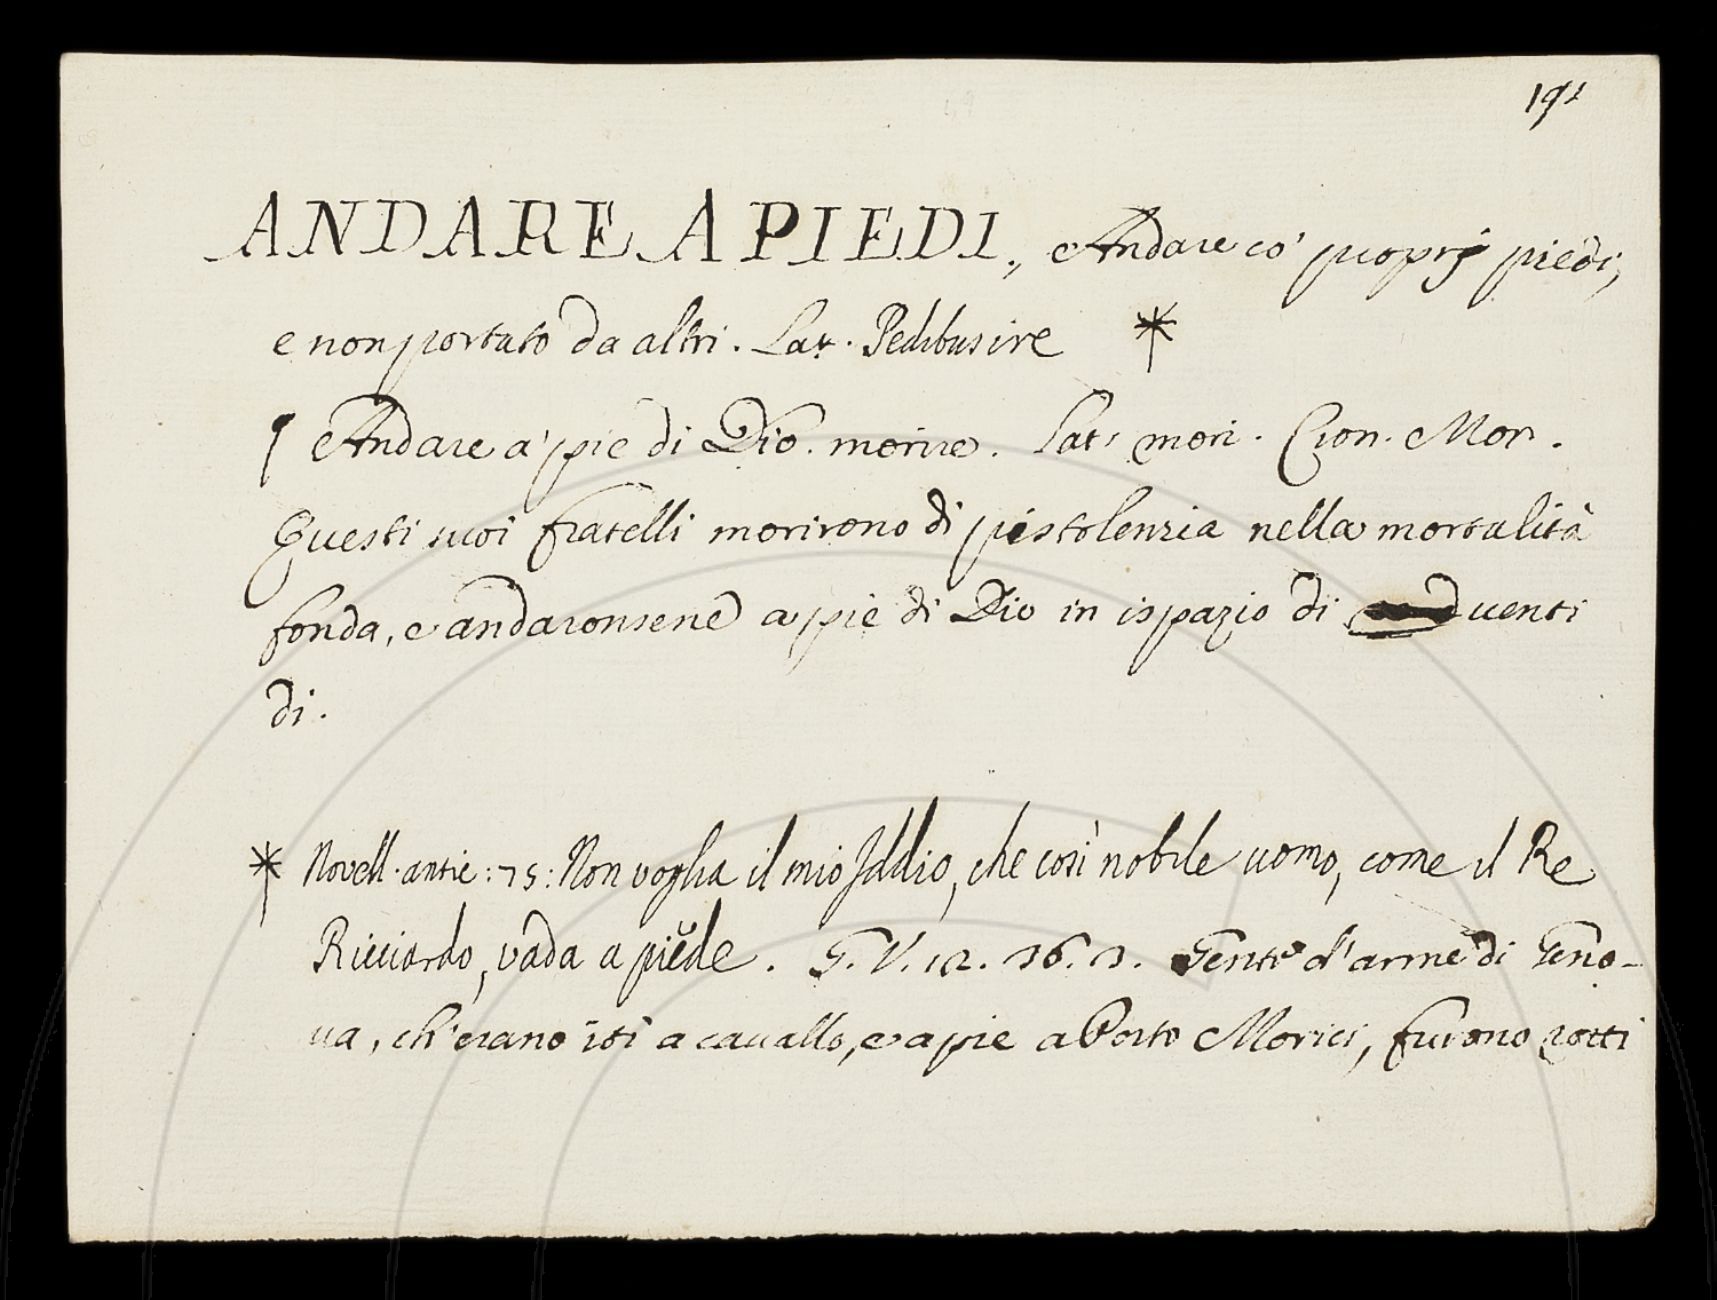 191
ANDARE A PIEDI., Andare co' proprj piedi,
e non portato da altri. Lat. Pedibus ire *
¶ Andare a' pie di Dio. morire. Lat. mori. Cron. Mor.
Questi suoi fratelli morirono di pistolenzia nella mortalità
fonda, e andaronsene a pie di Dio in ispazio di venti
di.
* Novell. antic: 75: Non voglia il mio Iddio, che così nobile uomo, come il Re
Ricciardo, vada a piede. G. V. 12. 36. 3. Gente d'arme di Geno-
ua, ch'erano iti a cauallo, e a pie a Porto Morici, furono rotti